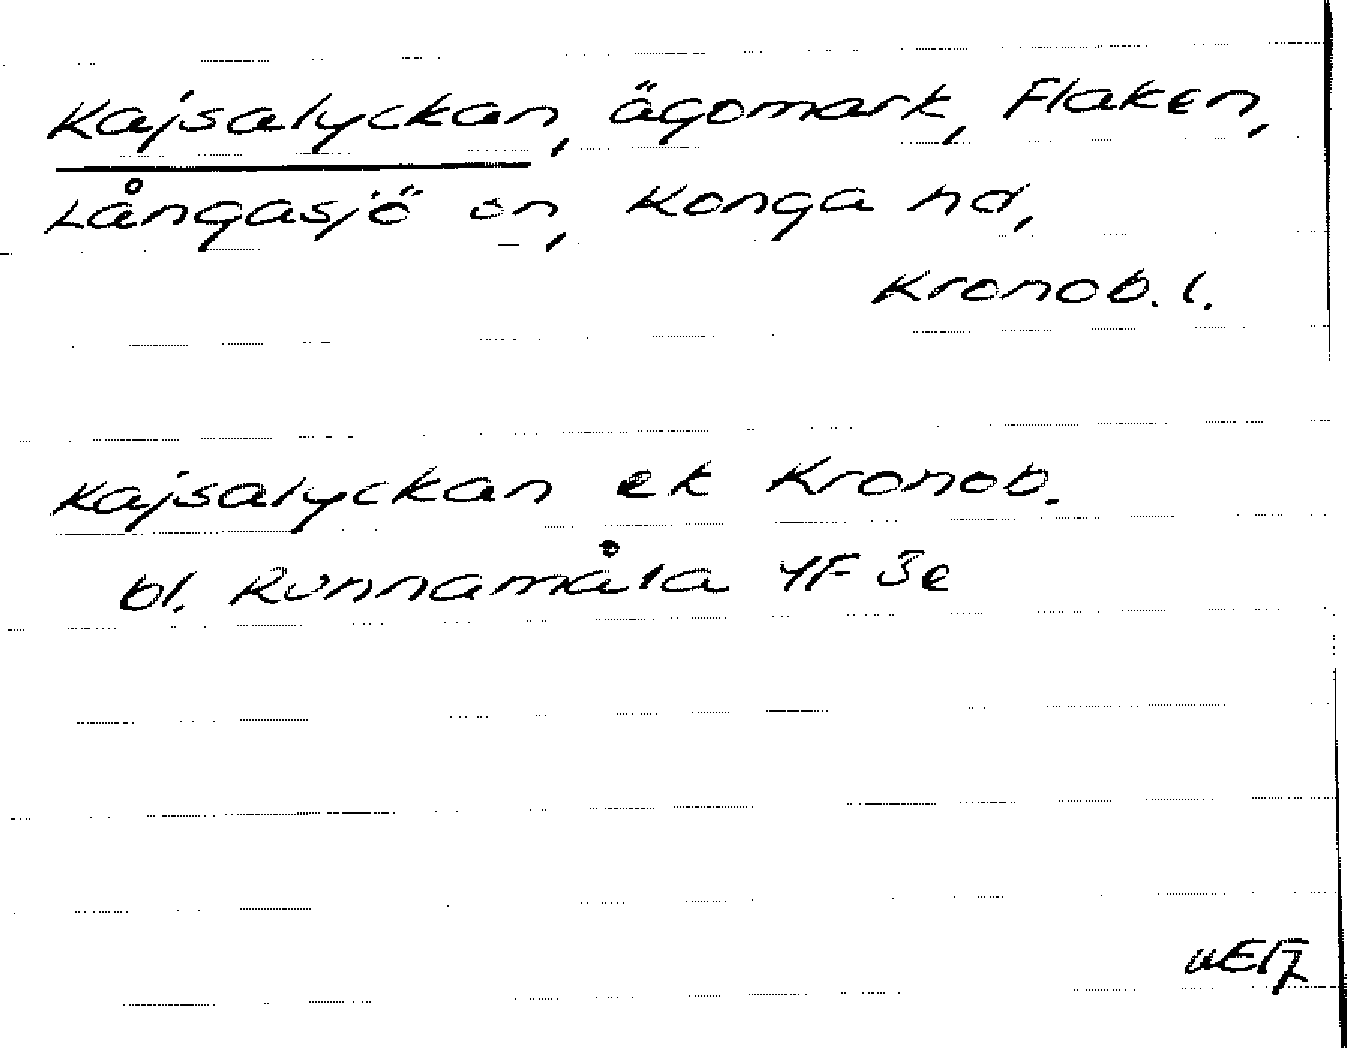 Kajsalyckan, ägomark, Flaken,
Långasjö sn, Konga hd,
Kronob. l.
Kajsalyckan ek Kronob.
bl. Runnamåla 4F 3e